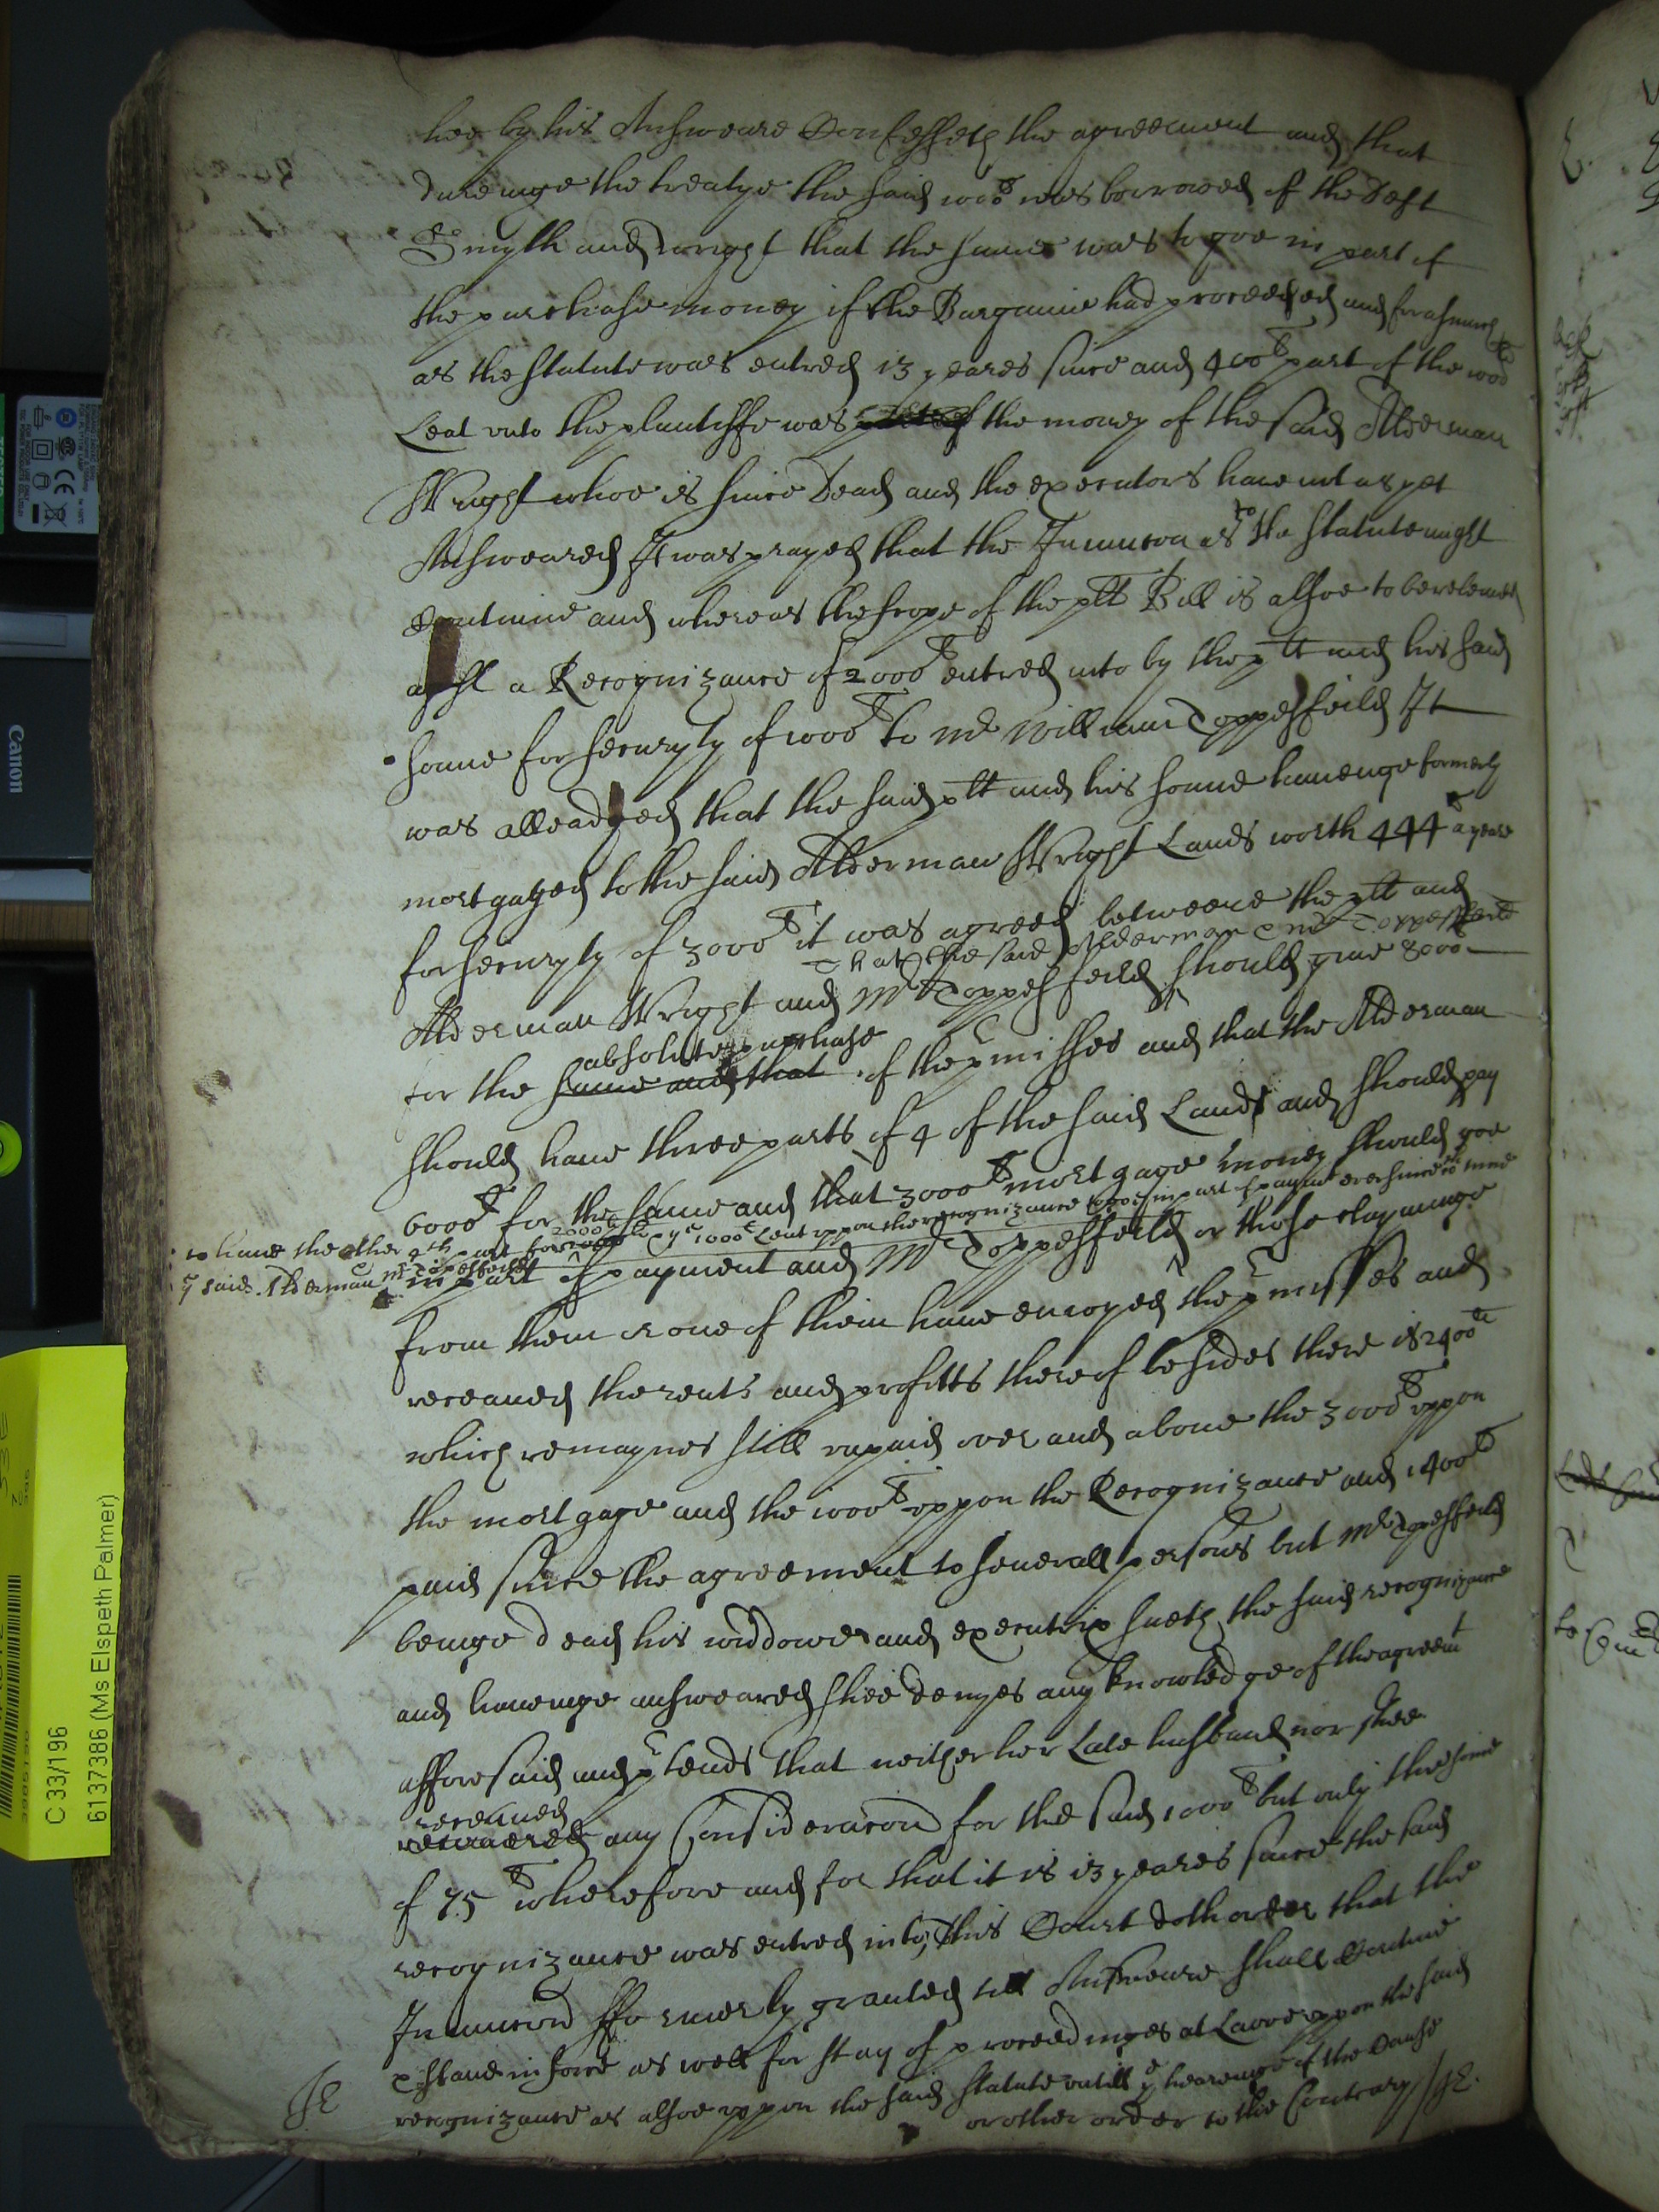 hee by his Answeare Confesseth the agreement and that
dureinge the treatye the said 1000£ was borrowed of the deft
Smyth and Wright that the same was to goe in part of
the purchase money if the Bargaine had proceeded and forasmuch
as the statute was entred 13 yeares since and 400£ part of the 1000£
Lent unto the plantiffe was the money of the said Alderman
Wright whoe is since dead and the executors have not as yet
Answeared It was prayed that the Iniunccon as to the statute might
Continue and whereas the scope of the plts Bill is alsoe to bereleived
agst a Recognizance of 2000£ entred into by the plt and his said
sonne for securyty of 1000£ to Mr William Toppesfeild It
was alleadged that the said plt and his sonne haveinge formerly
mortgaged to the said Alderman Wright Lands worth 444£ a yeare
for securyty of 3000£ it was agreed betweene the plt and
that the said Alderman & Mr Toppesfeild
Alderman Wright and Mr Toppesfeild should give 8000£
absolute purchase
for the same and that of the pmisses and that the Alderman
should have three parts of 4 of the said Lands and should pay
6000£ for the same and that 3000£ mortgage money should goe
to have the other 4th part for 2000£ & ye 1000£ Lent uppon the recognizance to goe in part of payment ever since wch time
ye said Alderman Mr Topesfeild
in part of payment and Mr Toppesfeild or those clayminge
from them or one of them have enioyed the pmisses and
receaved the rents and profitts thereof besides there is 2400£
which remaynes still unpaid over and above the 3000£ uppon
the mortgage and the 1000£ uppon the Recognizance and 1400£
paid since the agreement to severall persons but Mr Topesfeild
beinge dead his widdowe and executrix sueth the said recognizance
and haveinge answeared shee denyes any knowledge of the agreemt
afforesaid and ptends that neither her Late husband nor shee
receaved
any Consideracon for the said 1000£ but only the some
of 75£ wherefore and for that it is 13 yeares since the said
recognizance was entred into, This Court doth order that the
Iniunccon fformerly granted till Answeare shall Continue
& stand in force as well for stay of proceedinges at Lawe uppon the said
recognizance as alsoe uppon the said statute untill ye heareinge of the Cause
or other order to the Contrary
Canon
C 33/196
6137386 (Ms Elspeth Palmer)